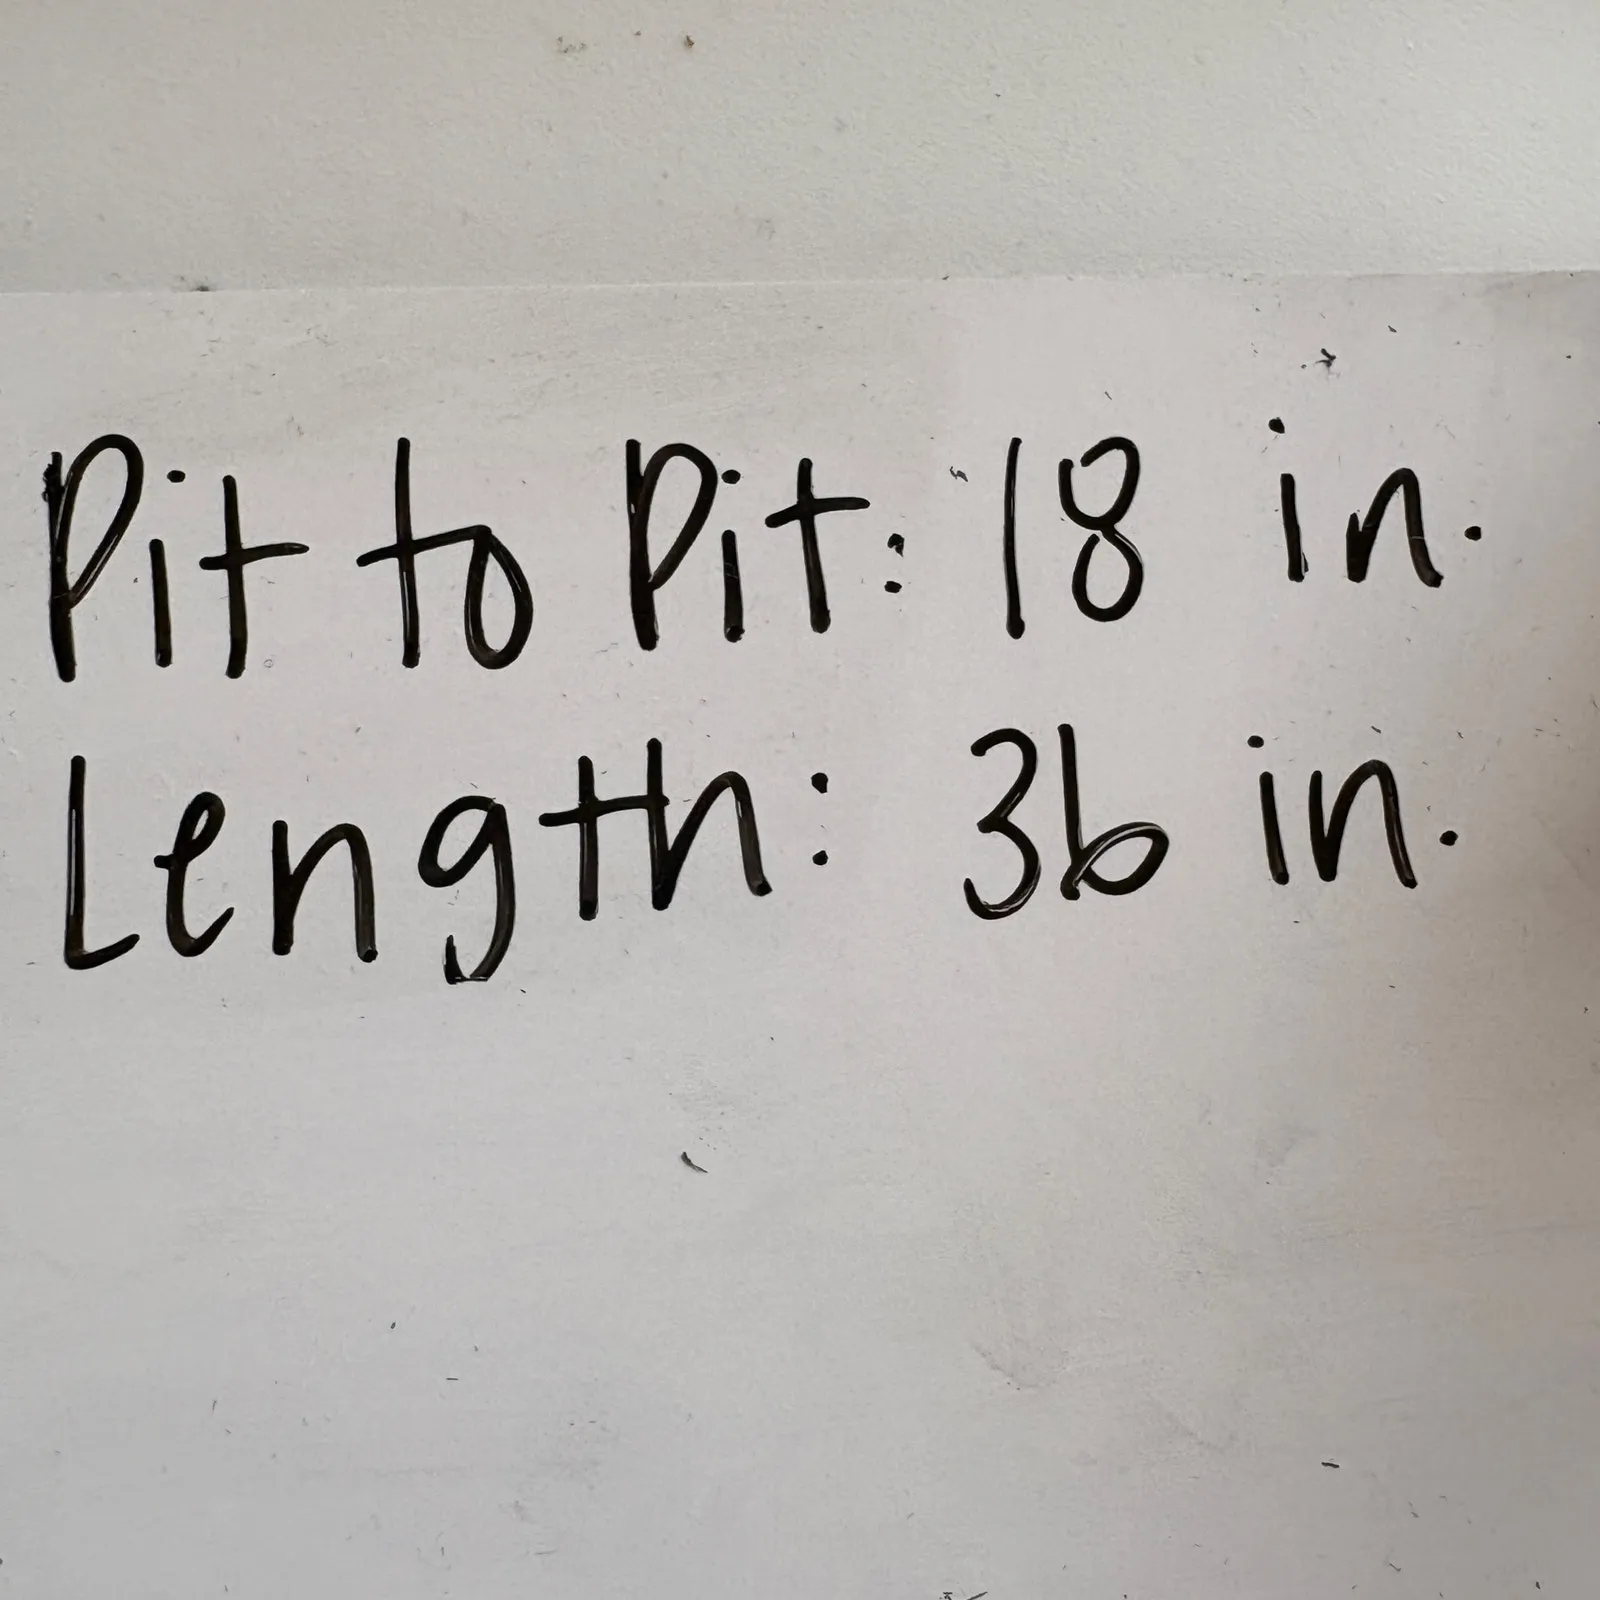 Pit to Pit: 18 in.
Length: 36 in.